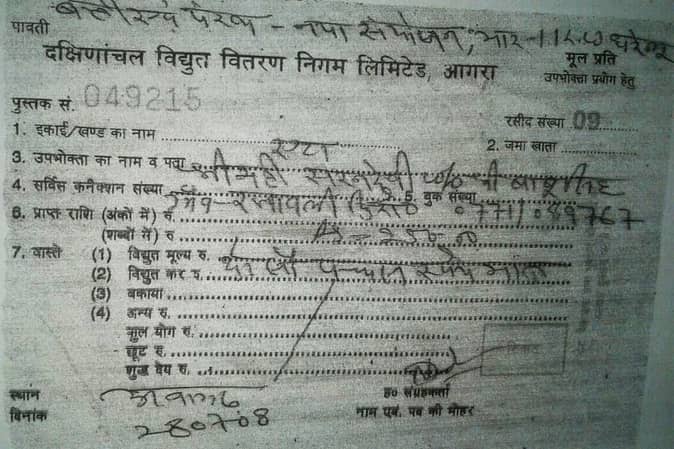 नया संयोजन, भार-1 K.W घरेलू
पावती
दक्षिणांचल विद्युत वितरण निगम लिमिटेड, आगरा
मूल प्रति
उपभोक्ता प्रयोग हेतु
पुस्तक सं. 049215
रसीद संख्या 09
1. इकाई/खण्ड का नाम
एटा
2. जमा खाता
3. उपभोक्ता का नाम व पता
श्रीमती
4. सर्विस कनैक्शन संख्या
5. बुक संख्या
0771/089767
6. प्राप्त राशि (अंकों में) रु.
(शब्दों में) रु
7. वास्ते (1) विद्युत मूल्य रु.
दो सौ पच्चास रुपये मात्र
(2) विद्युत कर रु.
(3) बकाया
(4) अन्य रु.
कुल योग रु.
छूट रु.
शुद्ध देय रु.
स्थान
दिनांक
280708
ह० संग्रहकर्ता
नाम एवं पद की मोहर